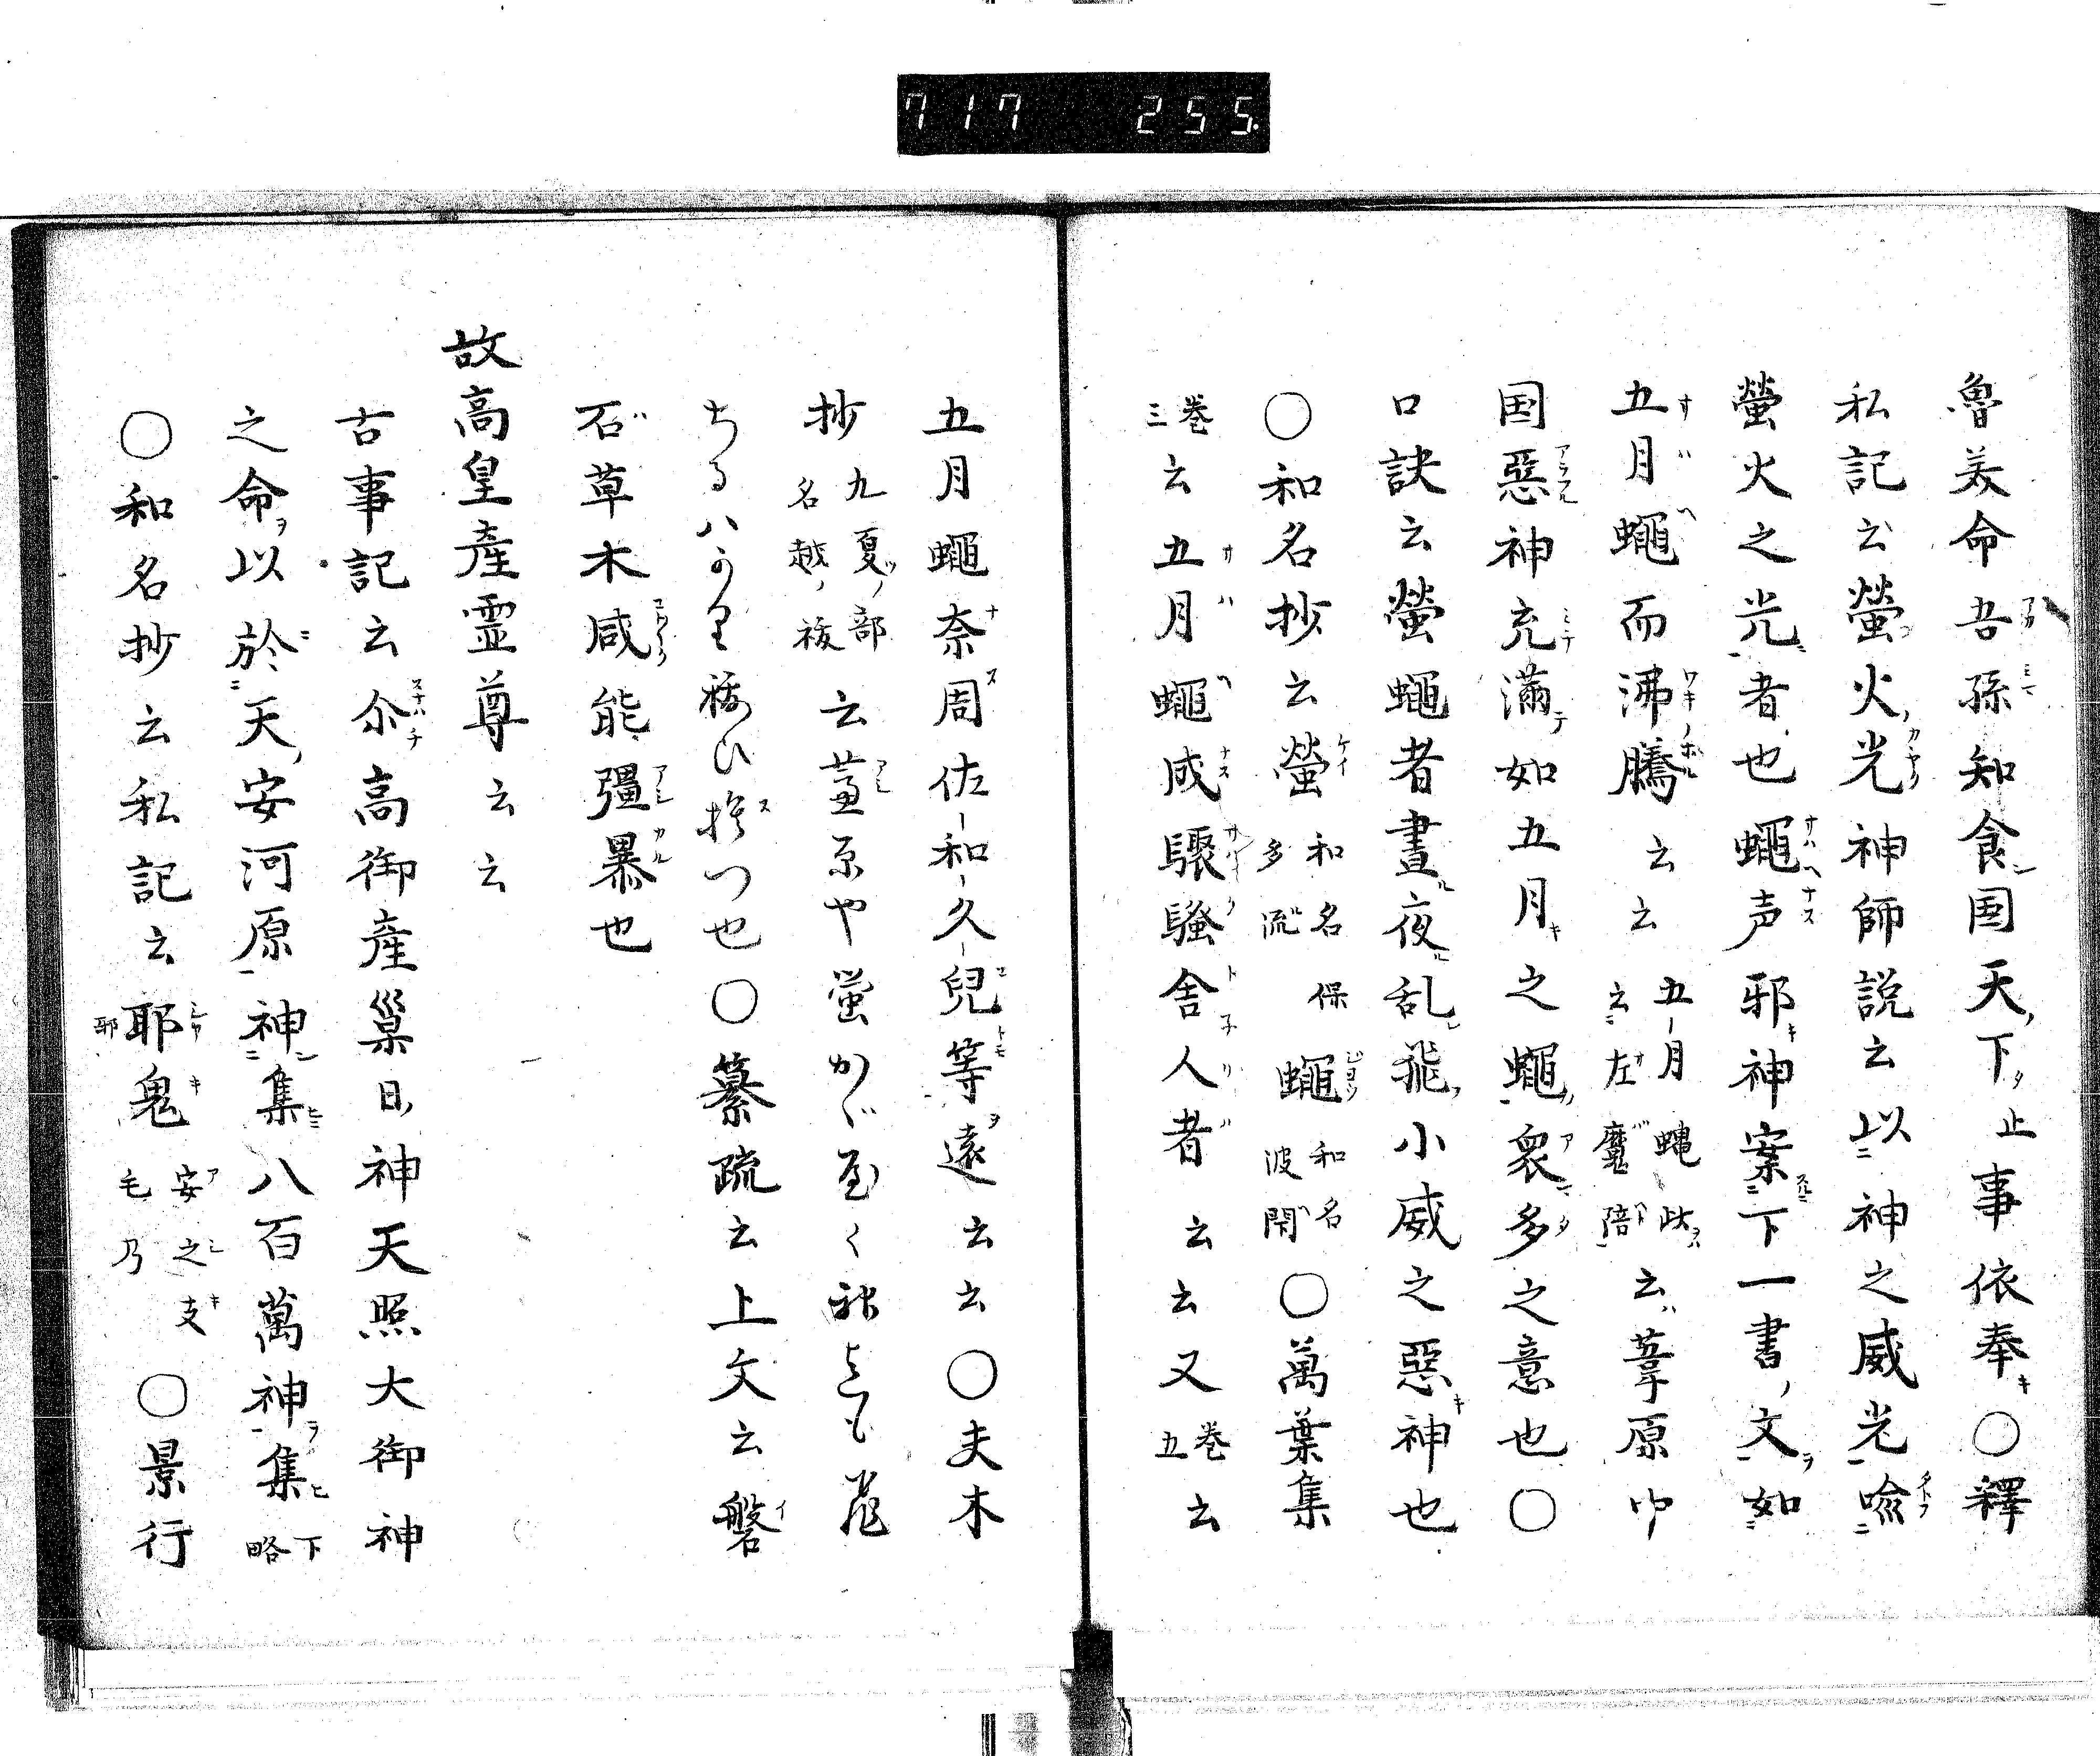 717 255.
魯美命吾孫知食国天下止事依奉〇釋
私記云螢火光神師説云以神之威光喩
螢火之光者也蠅声邪神案下一書文如
五月蠅而沸騰云云五月蠅此云左魔陪云葦原中
国惡神充満如五月之蠅衆多之意也〇
口訣云螢蠅者晝夜乱飛小威之惡神也
〇和名抄云螢和名保多流蠅和名波閇〇萬葉集
巻三云五月蠅成驟騒舎人者云云又巻五云
五月蠅奈周佐和久兒等遠云云〇夫木
抄九夏部名越祓云蘆原や螢かゞやく神も
ちるハ祓ひ捨つ也〇纂疏云上文云磐
石草木咸能彊暴也
故高皇産霊尊云云
古事記云尒高御産巣日神天照大御神
之命以於天安河原神集八百萬神集下略
〇和名抄云私記云耶鬼安之支毛乃〇景行
耶